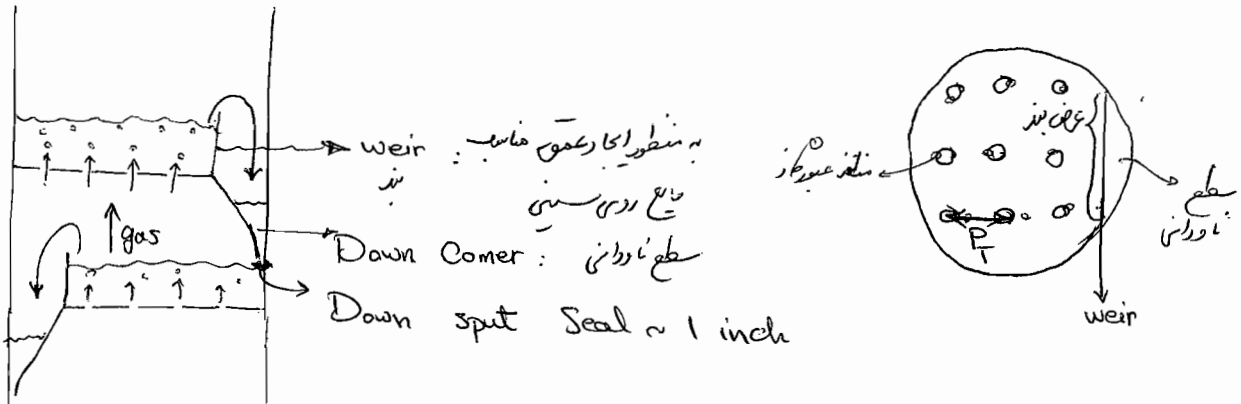 weir : به منظور ایجاد عمق مناسب
بند
مایع روی سینی
gas
Down Comer : سطح ناودانی
Down sput Seal ~ 1 inch
منفذ عبور گاز
عرض بند
سطح
ناودانی
P
weir